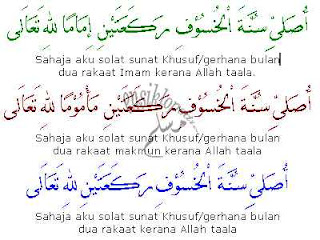 أُصَلِّى سُنَّةَ الْخُسُوْفِ رَكَعَتَيْنِ إِمَامًا لِلّٰهِ تَعَالَى
Sahaja aku solat sunat Khusuf/gerhana bulan
dua rakaat Imam kerana Allah taala.
أُصَلِّى سُنَّةَ الْخُسُوْفِ رَكَعَتَيْنِ مَأْمُوْمًا لِلّٰهِ تَعَالَى
Sahaja aku solat sunat Khusuf/gerhana bulan
dua rakaat makmun kerana Allah taala
أُصَلِّى سُنَّةَ الْخُسُوْفِ رَكَعَتَيْنِ لِلّٰهِ تَعَالَى
Sahaja aku solat sunat Khusuf/gerhana bulan
dua rakaat kerana Allah taala